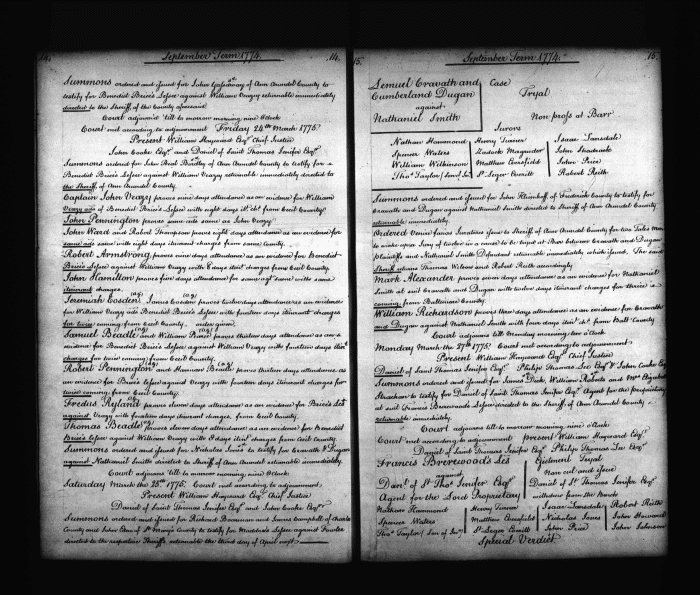 14. September Term 1774. 14.
Summons ordered and issued for John of Ann Arundel County to
testify for Benedict Brice's Lessee against William Veazy retainable immediately
directed to the Sheriff of the County aforesaid
Court adjourns till to morrow morning nine oClock
Court met according to adjournment Friday 24th March 1775
Present William Hayward Esqr Chief Justice
John Cooke Esqr and Daniel of Saint Thomas Jenifer Esqr
Summons ordered and issued for John Beal of Ann Arundel County to testify for a
Benedict Brice's Lessee against William Veazy retainable immediately directed to
the Sheriff of Ann Arundel County
Captain John Veazy proves nine days attendance as an evidence for William
Veazy ads of Benedict Brice's Lessee with eight days from Cecil County
John Pennington proves same ads same as John Veazy
John Ward and Robert Thompson proves eight days attendance as an evidence for
same ads same with eight days itinerant charges from same County.
Robert Armstrong proves nine days attendance as an evidence for Benedict
Brice's Lessee against William Veazy with 8 days charges from Cecil County.
John Hamilton proves five days attendance for same agt same with same
itinerant charges.
Jeremiah Cosden James Cosden proves twelve days attendance as an evidence
for William Veazy ads Benedict Brice's Lessee with fourteen days itinerant charges
for twice coming from Cecil County. order given
Samuel Beadle and William Pearce proves thirteen days attendance as an e
vidence for Benedict Brice's Lessee against William Veazy with fourteen days
charges for twice coming from Cecil County.
Robert Pennington and Beadle proves thirteen days attendance as
an evidence for Brice's Lessee against Veazy with fourteen days itinerant charges for
twice coming from Cecil County.
Fredus Ryland proves eleven days attendance as an evidence for Brice's Les
against Veazy with fourteen days itinerant charges from Cecil County
Thomas Beadle proves eleven days attendance as an evidence for Benedict
Brice's Lessee against William Veazy with 8 days charges from Cecil County.
Summons ordered and issued for Nicholas Jones to testify for Cravath & Dugan
against Nathaniel Smith directed to Sheriff of Ann Arundel retainable immediately.
Court adjourns till to morrow morning nine oClock
Saturday March the 25th 1775. Court met according to adjournment
Present William Hayward Esqr Chief Justice
Daniel of Saint Thomas Jenifer Esqr and John Cooke Esqr
Summons ordered and issued for Richard and James Campbell of Charles
County and John of St Marys County to testify for Lessee against
directed to the respective Sheriffs retainable the third day of April next
15. September Term 1774. 15.
Samuel Cravath and
Cumberland Dugan
against
Nathaniel Smith
Case
Tryal
Non pross at Barr
Jurors
Nathan Hammond Henry Turner Isaac Lansdale
Spencer Waters Zadock Magruder John Shadrack
William Wilkinson Matthew John Price
Thos Taylor (son of Jno) St Leger Everitt Robert Reith
Summons ordered and issued for John of Frederick County to testify for
Cravath and Dugan against Nathaniel Smith directed to Sheriff of Ann Arundel County
retainable immediately
Ordered Venire facias Juratores issue to Sheriff of Ann Arundel County for two Tales men
to make up a Jury of twelve in a cause to be tryed at Barr between Cravath and Dugan
plaintiffs and Nathaniel Smith Defendant retainable immediately which issued. The said
Sheriff returns Thomas and Robert Reith accordingly
Mark Alexander proves ten days attendance as an evidence for Nathaniel
Smith at suit Cravath and Dugan with twelve days itinerant charges for three
coming from Baltimore County.
William Richardson proves three days attendance as an evidence for Cravath
and Dugan against Nathaniel Smith with four days from Balt County.
Court adjourns till Monday morning ten oClock
Monday March the 27th 1775. Court met according to adjournment
Present William Hayward Esqr Chief Justice
Daniel of Saint Thomas Jenifer Esqr Philip Thomas Lee Esqr & John Cooke Esqr
Summons ordered and issued for James Dick, William Roberts and Mrs Elizabeth
Strachan to testify for Daniel of Saint Thomas Jenifer Esqr Agent for the proprietary
at suit Francis Brerewoods Lessee directed to the Sheriff of Ann Arundel County
retainable immediately
Court adjourns till to morrow morning nine oClock.
Court met according to adjournment present William Hayward Esqr Chief Justice
Daniel of Saint Thomas Jenifer Esqr Philip Thomas Lee Esqr
Francis Brerewoods Les
agt
Danl of St Thos Jenifer Esqr
Agent for the Lord Proprietary
Ejectment Tryal
Non cul and issue
Daniel of St Thomas Jenifer Esqr
withdrew from the Bench
Nathan Hammond Henry Turner Isaac Lansdale Robert Reith
Spencer Waters Matthew Nicholas Jones John Howard
Thos Taylor (son of Jno) St Leger Everitt John Price John Johnson
Special Verdict